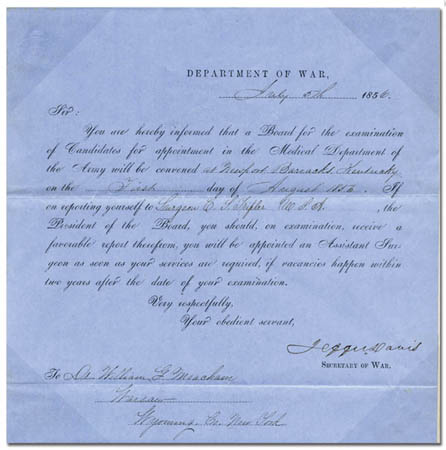 DEPARTMENT OF WAR,
July 5th 1856.
Sir:
You are hereby informed that a Board for the examination
of Candidates for appointment in the Medical Department of
the Army will be convened at Newport Barracks, Kentucky
on the First day of August 1856. If
on reporting yourself to Surgeon C. S. Tripler U.S.A., the
President of the Board, you should, on examination, receive a
favorable report therefrom, you will be appointed an Assistant Sur-
geon as soon as your services are required, if vacancies happen within
two years after the date of your examination.
Very respectfully,
Your obedient servant,
Jeffer. Davis
SECRETARY OF WAR.
To Dr. William G. Meacham
Warsaw
Wyoming Co. New York